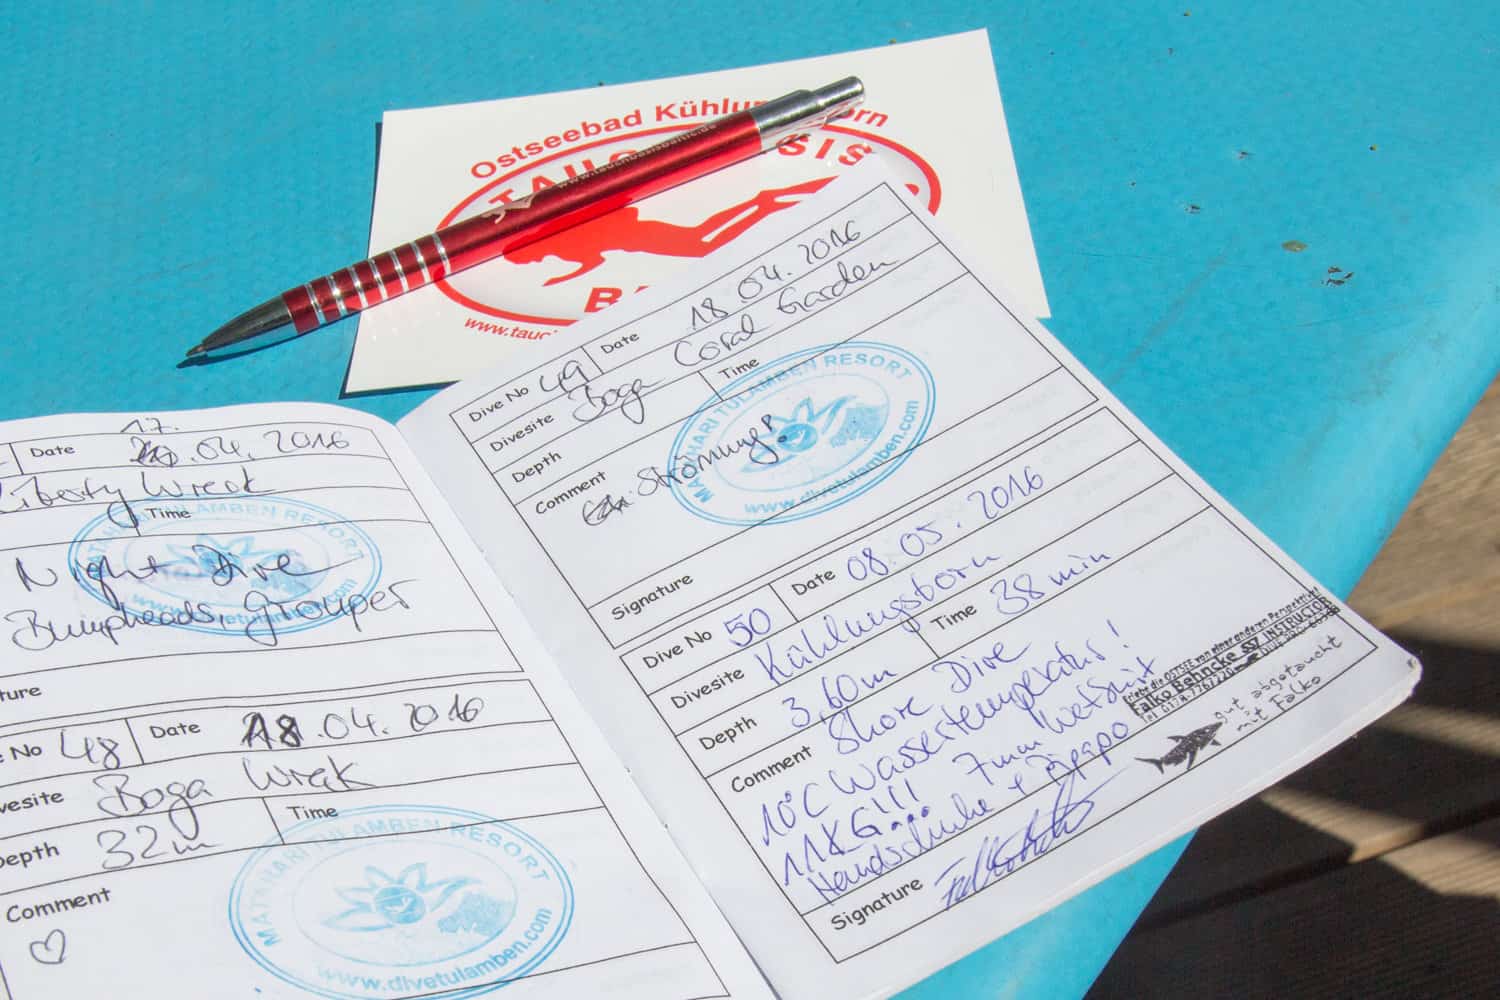 Ostseebad Kühlungsborn
TAUCHBASIS
www.tauchbasisbaltic.de
www.tauc
Date 17.04.2016
Liberty Wreck
Time
Night Dive
Bumpheads, Grouper
MATAHARI TULAMBEN RESORT
www.divetulamben.com
ture
e No 48 Date 18.04.2016
vesite Boga Wrak
Depth 32m Time
Comment
♡
MATAHARI TULAMBEN RESORT
www.divetulamben.com
Dive No 49 Date 18.04.2016
Divesite Boga Coral Garden
Depth Time
Comment Strömung
MATAHARI TULAMBEN RESORT
www.divetulamben.com
Signature
Dive No 50 Date 08.05.2016
Divesite Kühlungsborn
Depth 3,60m Time 38 min
Comment Shore Dive
10°C Wassertemperatur!
11KG!!! 7mm Wetsuit
Handschuhe +
Erlebe die OSTSEE von einer anderen Perspektive
Falko Behncke SSI INSTRUCTOR
gut abgetaucht
mit Falko
Signature